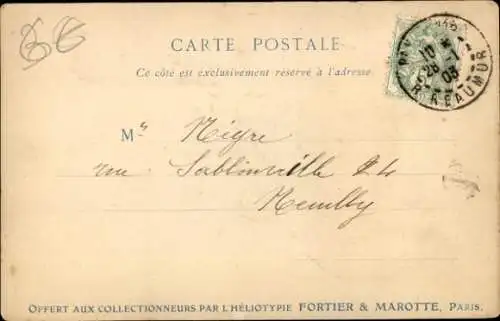 CARTE POSTALE
Ce côté est exclusivement réservé à l'adresse
10 M
26 -1
03
R. REAUMUR
Mr Nègre
rue Sablonville 24
Neuilly
OFFERT AUX COLLECTIONNEURS PAR L'HÉLIOTYPIE FORTIER & MAROTTE, PARIS.